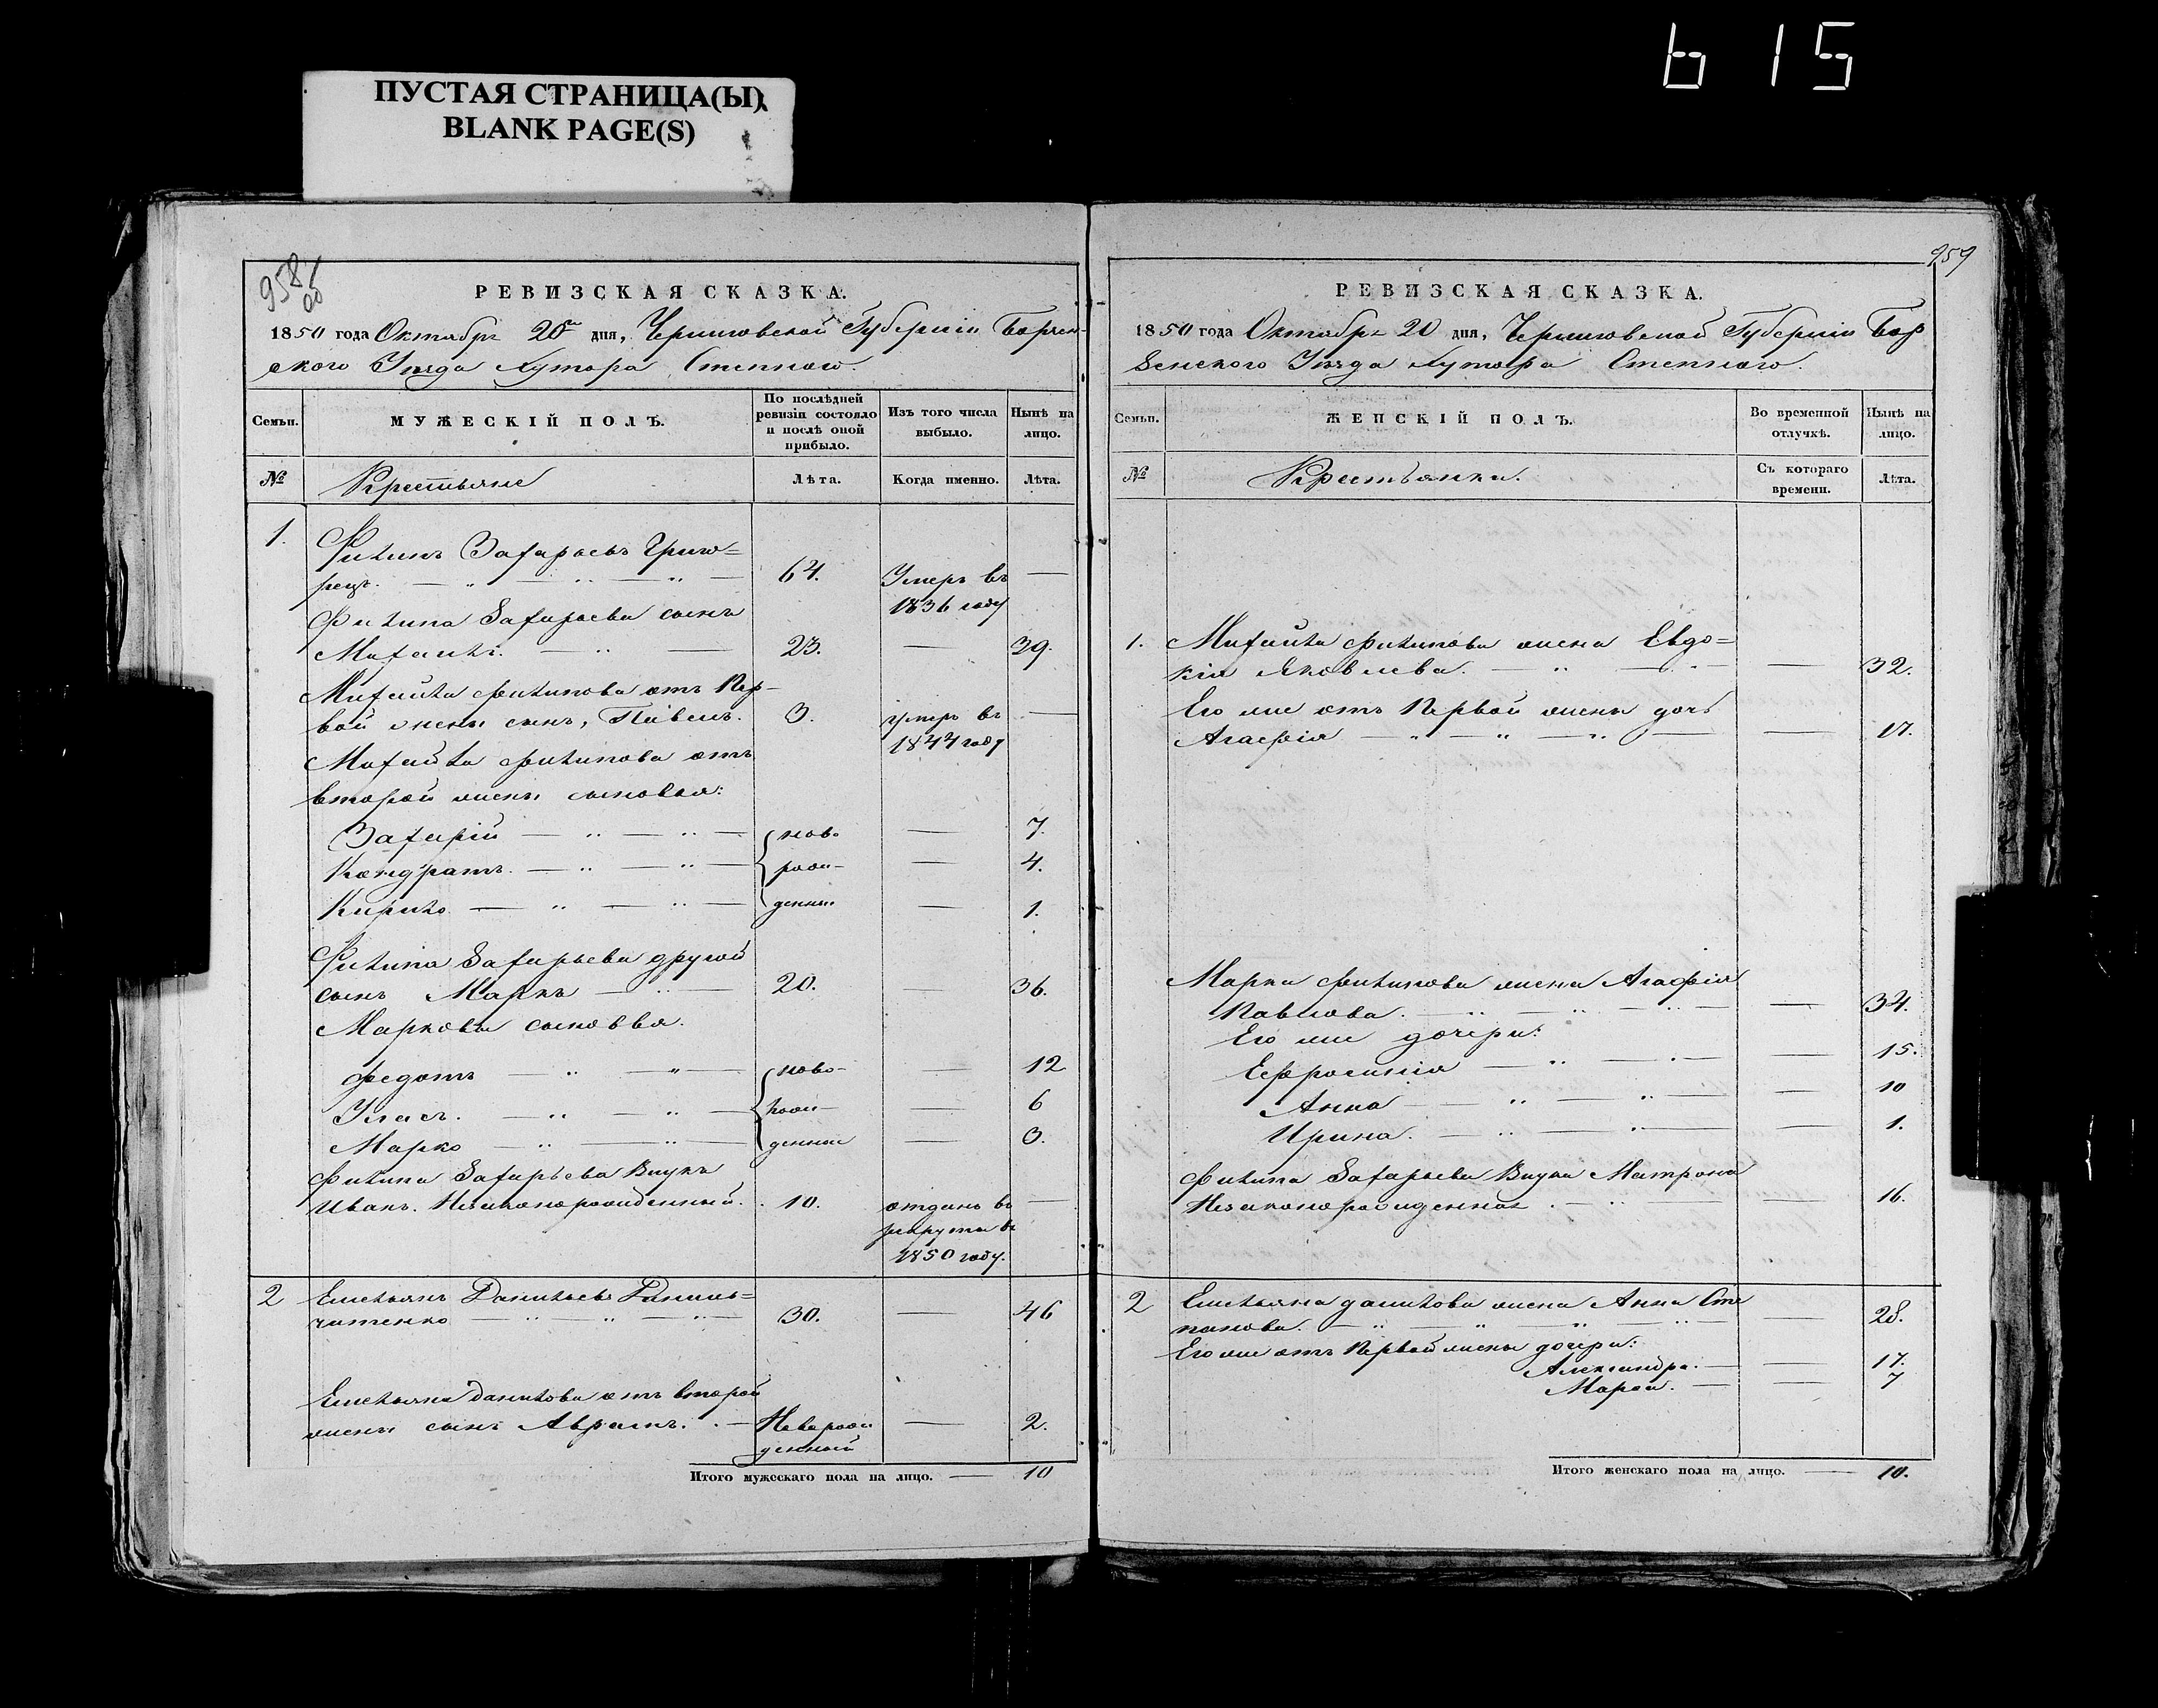 615
ПУСТАЯ СТРАНИЦА(Ы)
BLANK PAGE(S)
958
об
РЕВИЗСКАЯ СКАЗКА.
1850 года Октября 20го дня, Черниговской Губернии Борзен-
ского Уезда Хутора Степного.
Семьи.
МУЖЕСКІЙ ПОЛЪ.
По послѣдней
ревизіи состояло
и послѣ оной
прибыло.
Изъ того числа
выбыло.
Нынѣ на
лицо.
№
Крестьяне
Лѣта.
Когда именно.
Лѣта.
1.
Филипъ Захарьевъ Григо=
рецъ. 64. Умеръ въ —
1836 году
Филипа Захарьева сынъ
Михаилъ. 23. — 39.
Михайла Филипова отъ Пер-
вой жены сынъ, Павелъ. 3. умеръ въ —
1844 году
Михайла Филипова отъ
второй жены сыновья:
Захарій ново — 7.
Кондратъ. рож- — 4.
Кирило денные — 1.
Филипа Захарьева другой
сынъ Маркъ 20. — 36.
Маркова сыновья.
Федотъ ново- — 12
Уласъ. рож- — 6
Марко денные — 3.
Филипа Захарьева Внукъ
Иванъ. Незаконорожденный. 10. отданъ въ —
рекруты въ
1850 году.
2 Емельянъ Данильевъ Даниль=
ченко 30. — 46
Емельяна Данилова отъ второй
жены сынъ Абрамъ.Новорож — 2.
денный
Итого мужескаго пола на лицо. — 10
959
РЕВИЗСКАЯ СКАЗКА.
1850 года Октября 20 дня, Черниговской Губернии Бор
зенского Уезда Хутора Степного.
Семьи.
ЖЕНСКІЙ ПОЛЪ.
Во временной
отлучкѣ.
Нынѣ на
лицо.
№
Крестьянки.
Съ котораго
времени.
Лѣта.
1. Михайла Филипова жена Евдо=
кія Яковлева. — 32.
Его же отъ Первой жены дочь
Агафія — 17.
Марка Филипова жена Агафія
Павлова. — 34.
Его же дочери:
Ефросинія — 15.
Анна — 10
Ирина. — 1.
Филипа Захарьева Внука Матрона
Незаконорожденная. — 16.
2 Емельяна Данилова жена Анна Сте
панова. — 28.
Его же отъ Первой жены дочери:
Александра. — 17.
Марья. — 7
Итого женскаго пола на лицо. — 10.